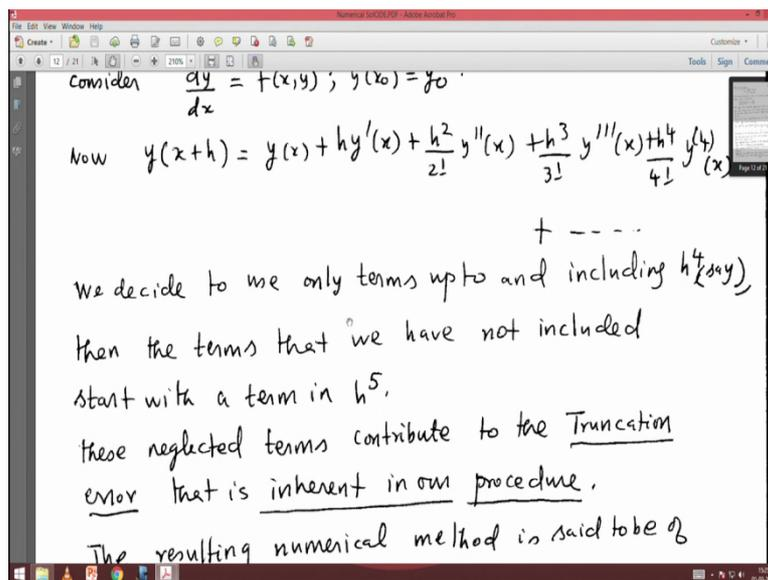 Numerical SolODE.PDF - Adobe Acrobat Pro
File Edit View Window Help
Create
Customize
12 / 21
210%
Tools Sign Comment
Consider dy/dx = f(x,y) ; y(x₀) = y₀ .
Now y(x+h) = y(x) + hy'(x) + h²/2! y''(x) + h³/3! y'''(x) + h⁴/4! y⁽⁴⁾(x)
+ ----..
Page 12 of 21
We decide to use only terms upto and including h⁴ (say),
then the terms that we have not included
start with a term in h⁵.
these neglected terms contribute to the Truncation
error that is inherent in our procedure.
The resulting numerical method is said to be of